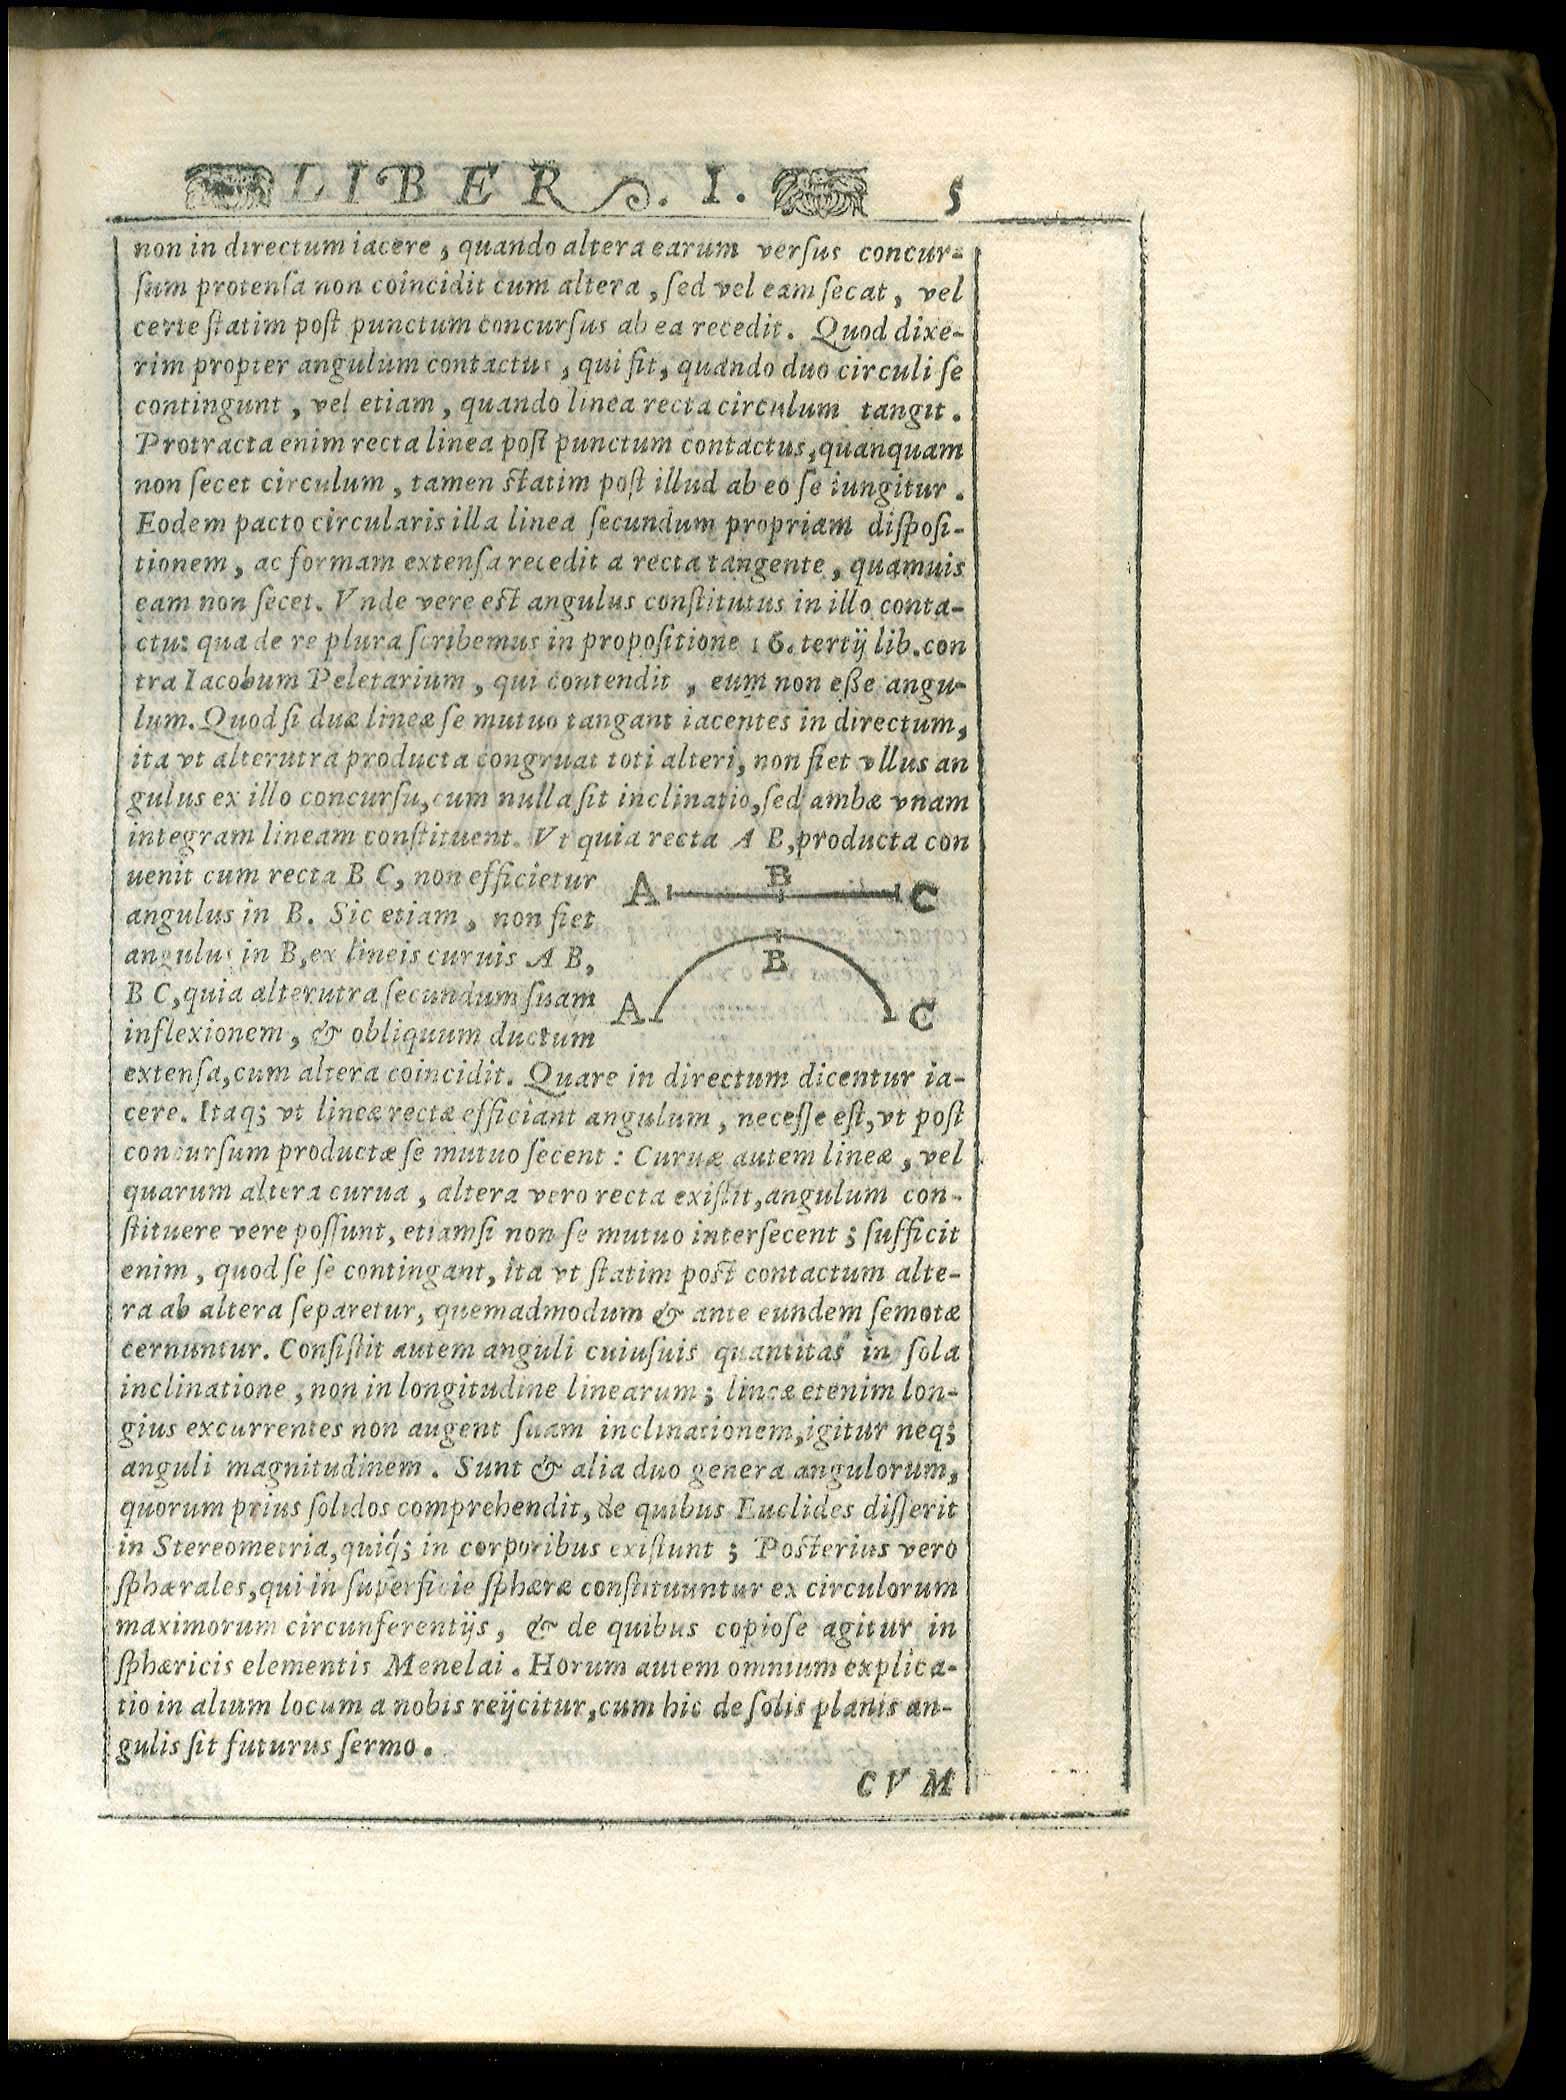 LIBER. I. 5
non in directum iacere, quando altera earum verſus concur-
ſum protenſa non coincidit cum altera, ſed vel eam ſecat, vel
certe ſtatim poſt punctum concurſus ab ea recedit. Quod dixe-
rim propter angulum contactus, qui fit, quando duo circuli ſe
contingunt, vel etiam, quando linea recta circulum tangit.
Protracta enim recta linea poſt punctum contactus, quanquam
non ſecet circulum, tamen ſtatim poſt illud ab eo ſe iungitur.
Eodem pacto circularis illa linea ſecundum propriam diſpoſi-
tionem, ac formam extenſa recedit a recta tangente, quamuis
eam non ſecet. Vnde vere eſt angulus conſtitutus in illo conta-
ctu: qua de re plura ſcribemus in propoſitione 16. tertij lib. con
tra Iacobum Peletarium, qui contendit, eum non eſſe angu-
lum. Quod ſi duæ lineæ ſe mutuo tangant iacentes in directum,
ita vt alterutra producta congruat toti alteri, non fiet vllus an
gulus ex illo concurſu, cum nulla ſit inclinatio, ſed ambæ vnam
integram lineam conſtituent. Vt quia recta A B, producta con
uenit cum recta B C, non efficietur
angulus in B. Sic etiam, non fiet
angulus in B, ex lineis curuis A B,
B C, quia alterutra ſecundum ſuam
inflexionem, & obliquum ductum
A B C
A B C
extenſa, cum altera coincidit. Quare in directum dicentur ia-
cere. Itaq; vt lineæ rectæ efficiant angulum, neceſſe eſt, vt poſt
concurſum productæ ſe mutuo ſecent: Curuæ autem lineæ, vel
quarum altera curua, altera vero recta exiſtit, angulum con-
ſtituere vere poſſunt, etiamſi non ſe mutuo interſecent; ſufficit
enim, quod ſe ſe contingant, ita vt ſtatim poſt contactum alte-
ra ab altera ſeparetur, quemadmodum & ante eundem ſemotæ
cernuntur. Conſiſtit autem anguli cuiuſuis quantitas in ſola
inclinatione, non in longitudine linearum; lineæ etenim lon-
gius excurrentes non augent ſuam inclinationem, igitur neq;
anguli magnitudinem. Sunt & alia duo genera angulorum,
quorum prius ſolidos comprehendit, de quibus Euclides diſſerit
in Stereometria, quiq́; in corporibus exiſtunt; Poſterius vero
ſphærales, qui in ſuperficie ſphæræ conſtituuntur ex circulorum
maximorum circunferentijs, & de quibus copioſe agitur in
ſphæricis elementis Menelai. Horum autem omnium explica-
tio in alium locum a nobis reijcitur, cum hic de ſolis planis an-
gulis ſit futurus ſermo.
CVM